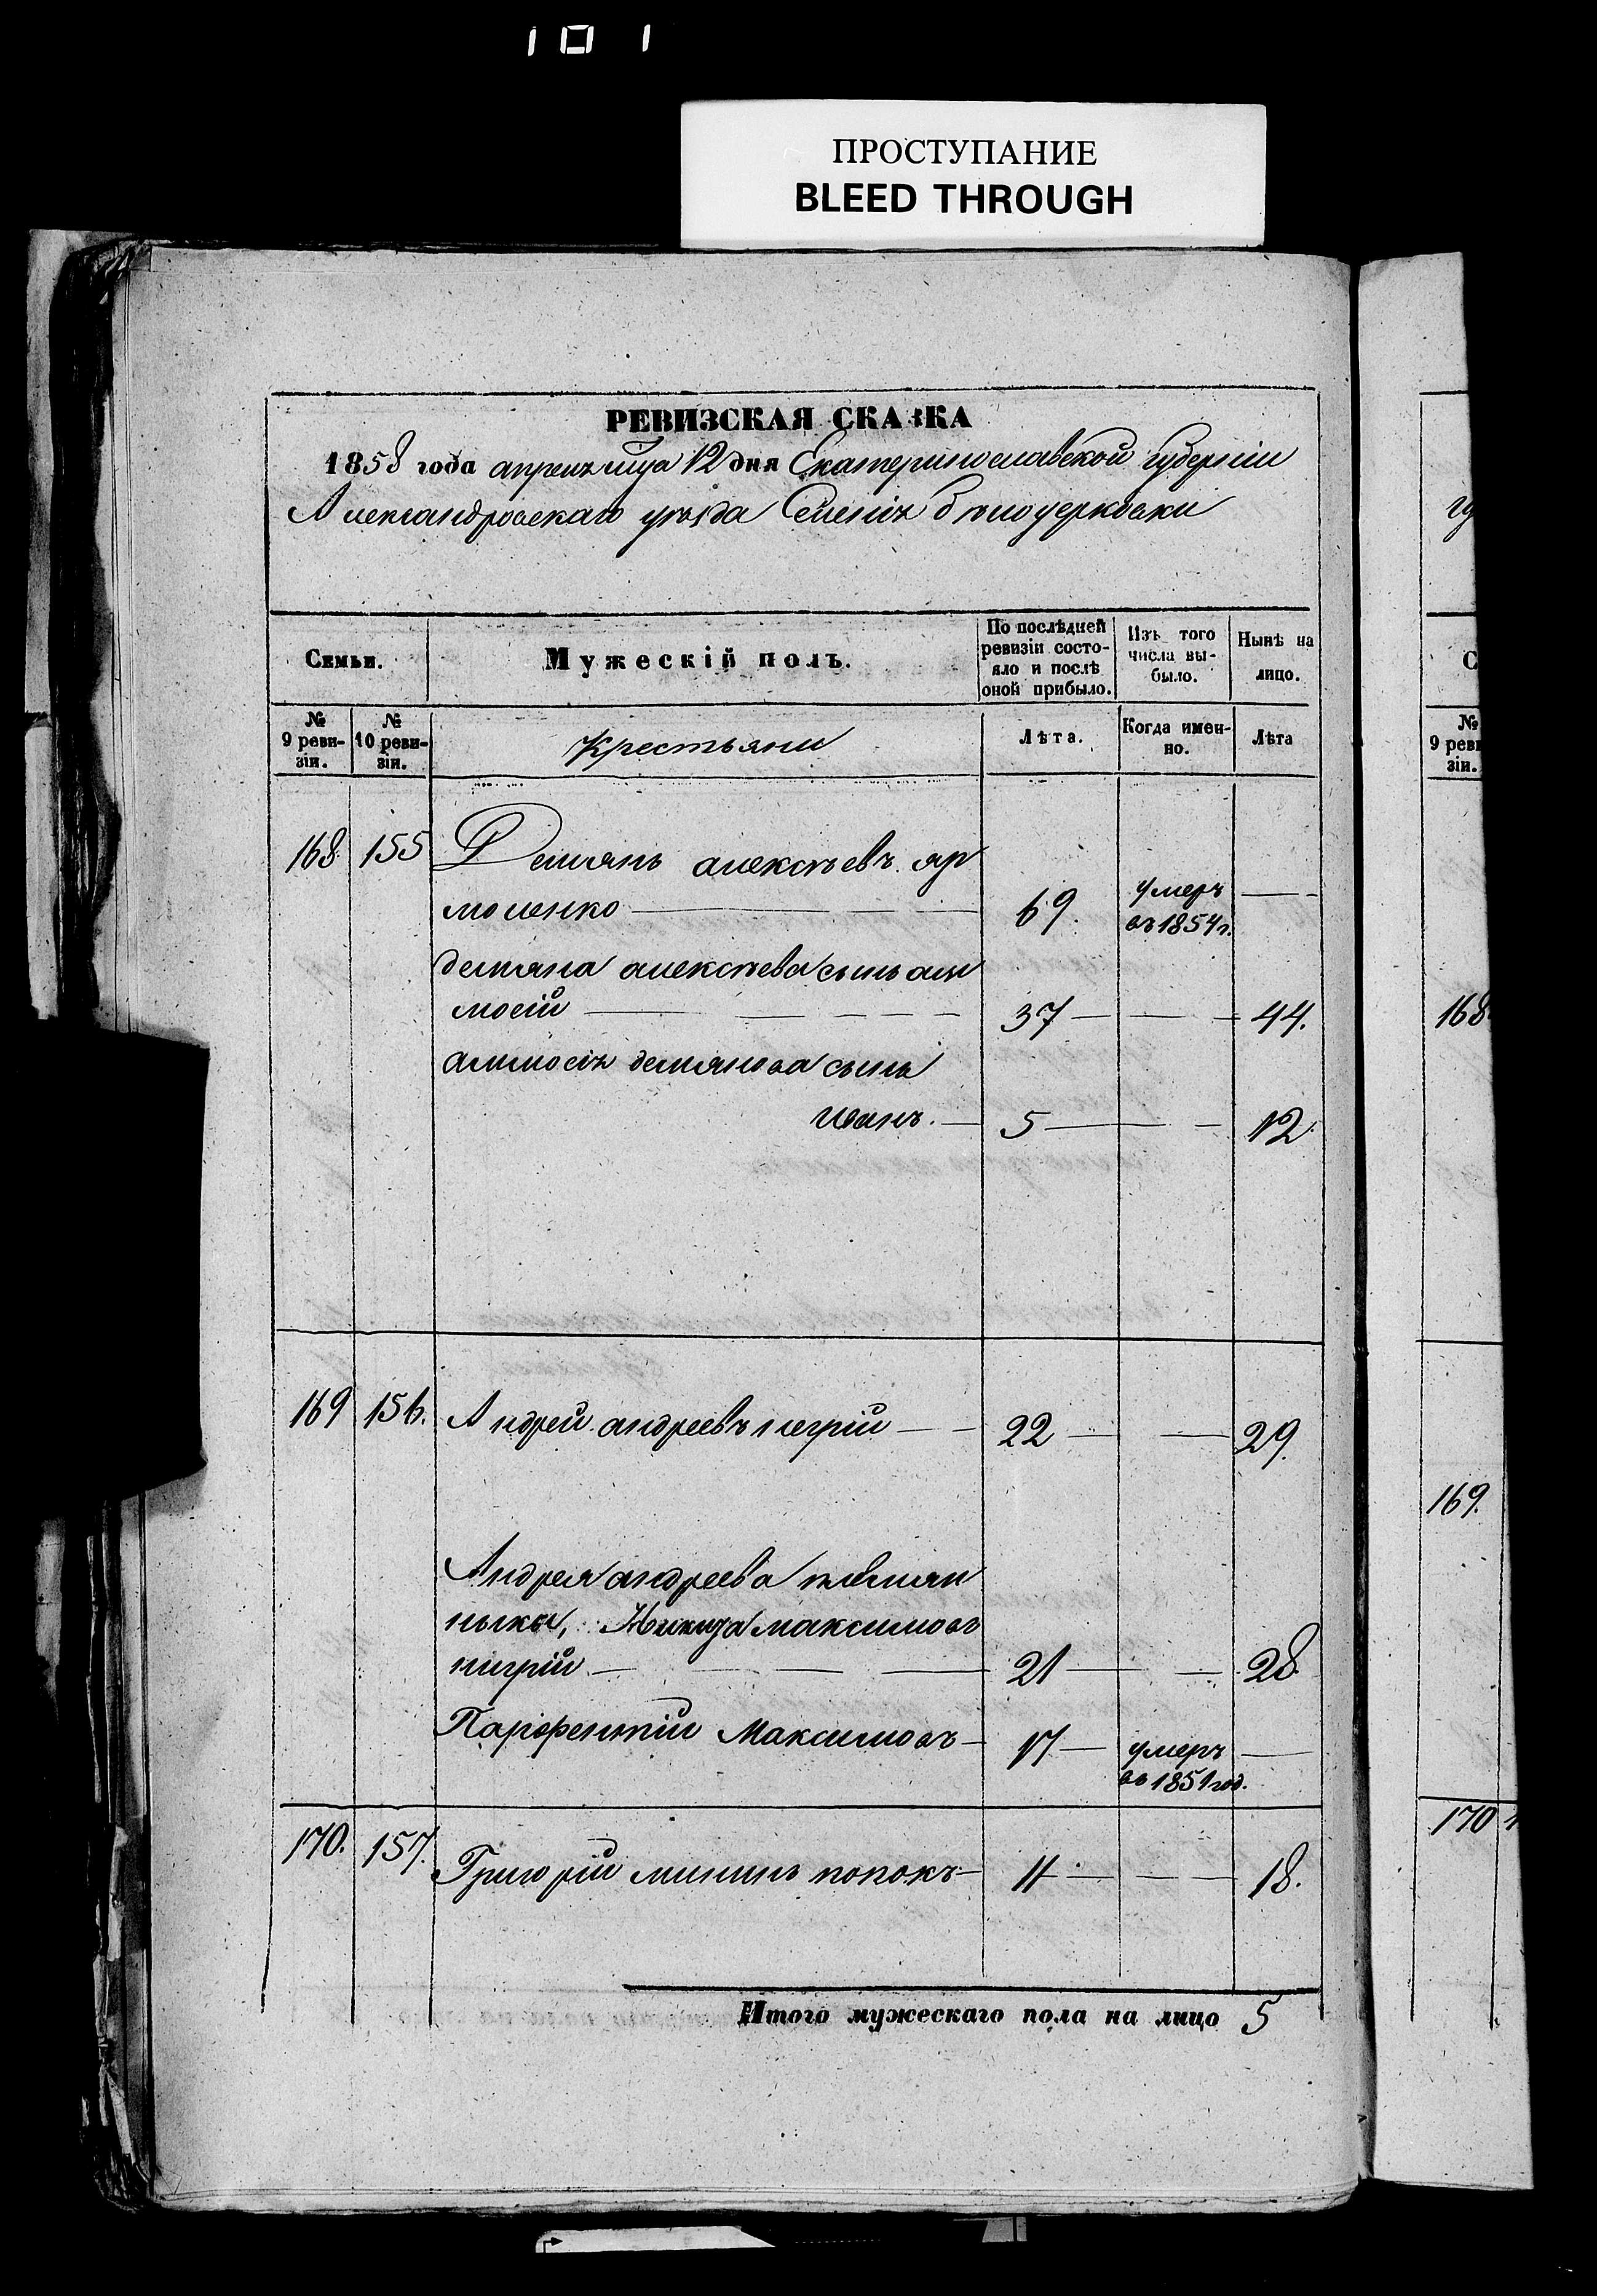 101
ПРОСТУПАНИЕ
BLEED THROUGH
РЕВИЗСКАЯ СКАЗКА
1858 года апреля 12 дня Екатеринославской губерніи
Александровскаго уѣзда Бѣлоцерковки
Семьи.
Мужескій полъ.
По послѣдней ревизіи состояло и послѣ оной прибыло.
Изъ того числа выбыло.
Нынѣ на лицо.
№ 9 ревизіи.
№ 10 ревизіи.
Крестьяни
Лѣта.
Когда именно.
Лѣта
168. 155 Демянъ алексѣевъ яр
моленко 69. умеръ въ 1854 г.
демяна алексѣева сынъ ам
мосій 37 44.
аммосія демянова сынъ
иванъ. 5 12.
169 156. Андрей андреевъ негрій 22 29.
Андрея андреева племян
ныки, Никита максимовъ
нигрій 21 28
Парфентій Максимовъ 17 умеръ въ 1851 год.
170. 157. Григорій мининъ попокъ 11 18.
Итого мужескаго пола на лицо 5
гу
С
№
9 реви
зіи.
168.
169.
170